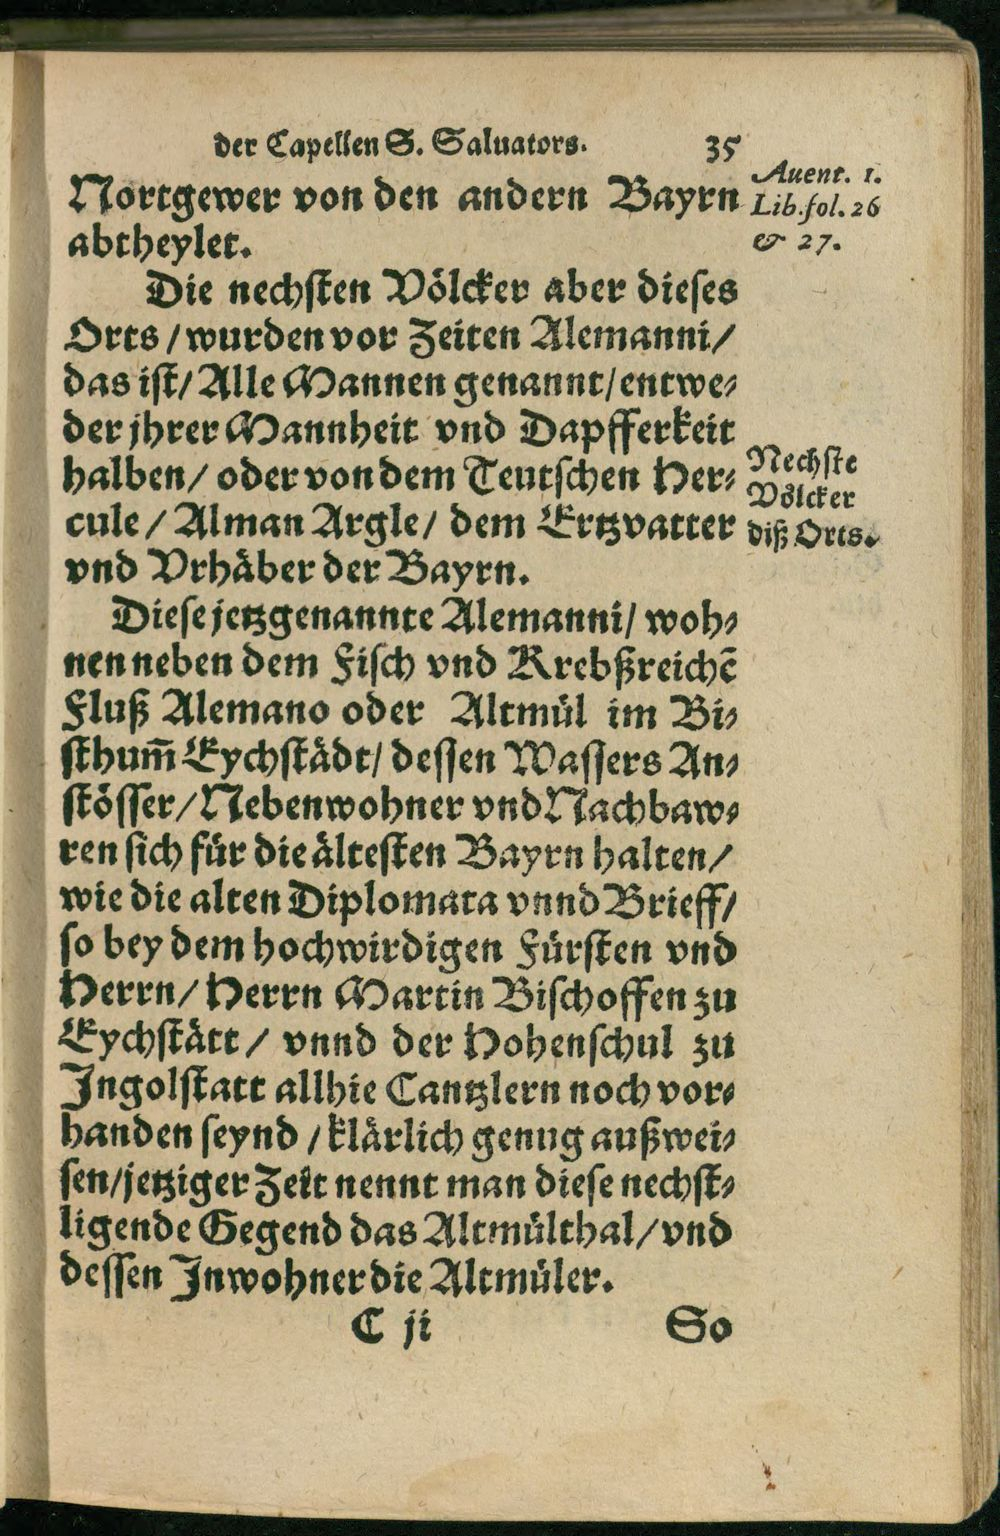 der Capellen S. Saluators. 35
Nortgewer von den andern Bayrn
abtheylet.
Auent. 1.
Lib. fol. 26
& 27.
Die nechsten Völcker aber dieses
Orts / wurden vor Zeiten Alemanni /
das ist / Alle Mannen genannt / entwe⸗
der jhrer Mannheit vnd Dapfferkeit
halben / oder von dem Teutschen Her⸗
cule / Alman Argle / dem Ertzvatter
vnd Vrhäber der Bayrn.
Nechste
Völcker
diß Orts.
Diese jetzgenannte Alemanni / woh⸗
nen neben dem Fisch vnd Krebßreichē
Fluß Alemano oder Altmül im Bi⸗
sthum̃ Eychstädt / dessen Wassers An⸗
stösser / Nebenwohner vnd Nachbaw⸗
ren sich für die ältesten Bayrn halten /
wie die alten Diplomata vnnd Brieff /
so bey dem hochwirdigen Fürsten vnd
Herrn / Herrn Martin Bischoffen zu
Eychstätt / vnnd der Hohenschul zu
Ingolstatt allhie Cantzlern noch vor⸗
handen seynd / klärlich genug außwei⸗
sen / jetziger Zeit nennt man diese nechst⸗
ligende Gegend das Altmülthal / vnd
dessen Inwohner die Altmüler.
C ij So